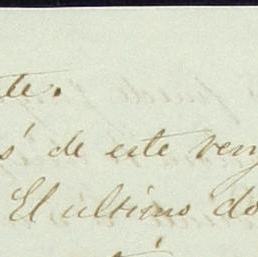 te.
s' de este ven
El ultimo do